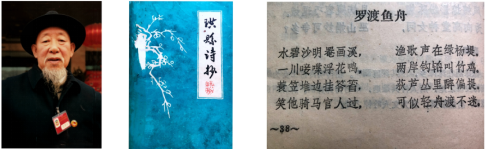 珙县诗抄
罗渡鱼舟
水碧沙明罨画溪，渔歌声在绿杨堤，
一川唼喋浮花鸭，两岸钩辀叫竹鸡，
蓑笠堆边挂笭箵，荻芦丛里醉偏提，
笑他骑马官人过，可似轻舟渡不迷。
～38～